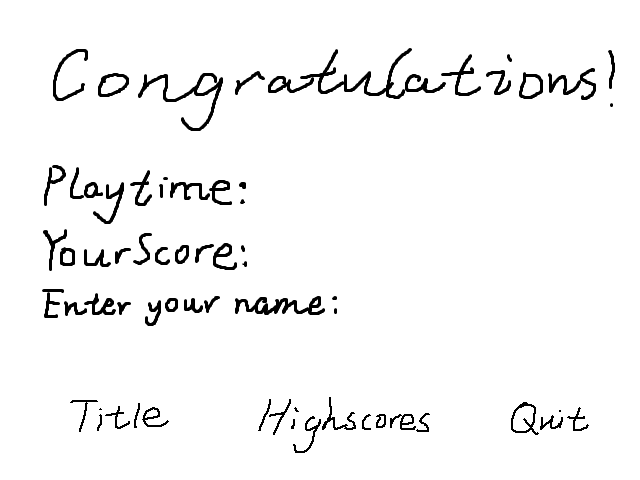 Congratulations!
Playtime:
Your Score:
Enter your name:
Title Highscores Quit